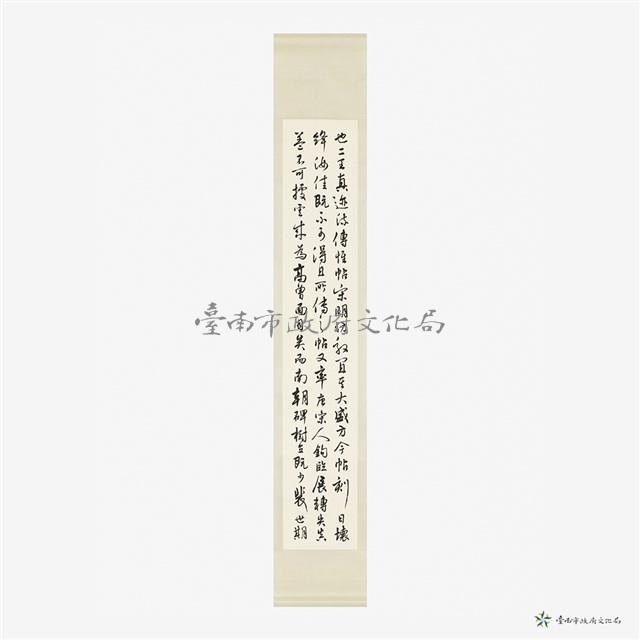 也二王真迹流傳惟帖宋明仿效宜其大盛方今帖刻日壞
絳汝佳既不可得且所傳之帖又率唐宋人鈎臨展轉失真
蓋不可據云来為高曾面目矣而南朝碑樹立既少裴世期
臺南市政府文化局
臺南市政府文化局